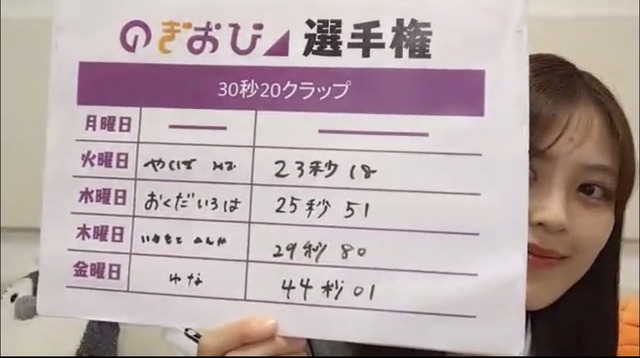 のぎおび 選手権
30秒20クラップ
月曜日
火曜日 23秒18
水曜日 おくだいろは 25秒51
木曜日 29秒80
金曜日 ゆな 44秒01